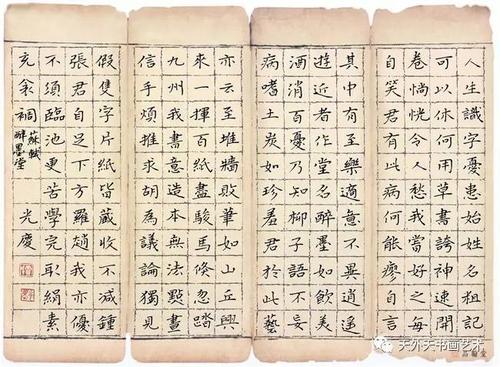 人生識字憂患始姓名粗記
可以休何用草書誇神速開
卷惝恍令人愁我嘗好之每
自笑君有此病何能瘳自言
其中有至樂適意不異逍遥
遊近者作堂名醉墨如飲美
酒消百憂乃知柳子語不妄
病嗜土炭如珍羞君於此藝
亦云至堆牆敗筆如山丘興
來一揮百紙盡駿馬倏忽踏
九州我書意造本無法點畫
信手煩推求胡為議論獨見
假隻字片紙皆藏收不减鍾
張君自足下方羅趙我亦優
不須臨池更苦學完取絹素
充衾裯
蘇軾
醉墨堂
光慶
天外天书画艺术